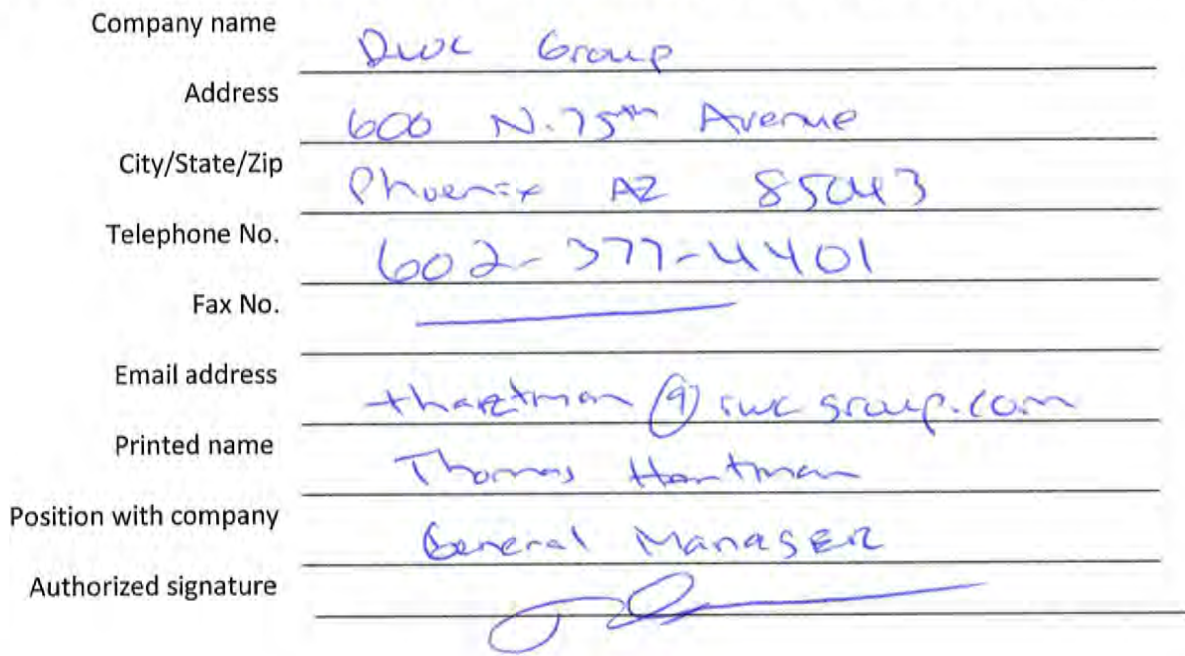 Company name RWC Group
Address 600 N. 75th Avenue
City/State/Zip Phoenix AZ 85043
Telephone No. 602-377-4401
Fax No.
Email address thartman@rwcgroup.com
Printed name Thomas Hartman
Position with company General Manager
Authorized signature